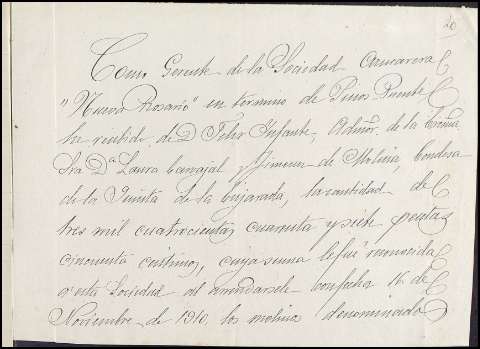 20
Como Gerente de la Sociedad Azucarera
"Nueva Rosario" en término de Pinos-Puente
he recibido de D. Felix Infante, Admor. de la Excma.
Sra Dª Laura Carvajal y Jimenez de Molina, Condesa
de la Quinta de la Enjarada, la cantidad de
tres mil cuatrocientas cuarenta y siete pesetas
cincuenta centimos, cuya suma le fué reconocida
a esta Sociedad al arrendarsele con fecha 16 de
Noviembre de 1910, los molinos denominados